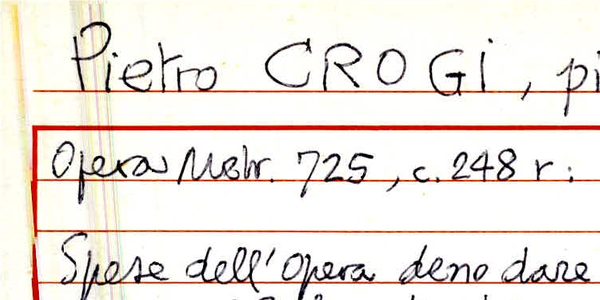 Pietro CROGi, pi
Opera Metr. 725, c. 248 r:
Spese dell'Opera deno dare